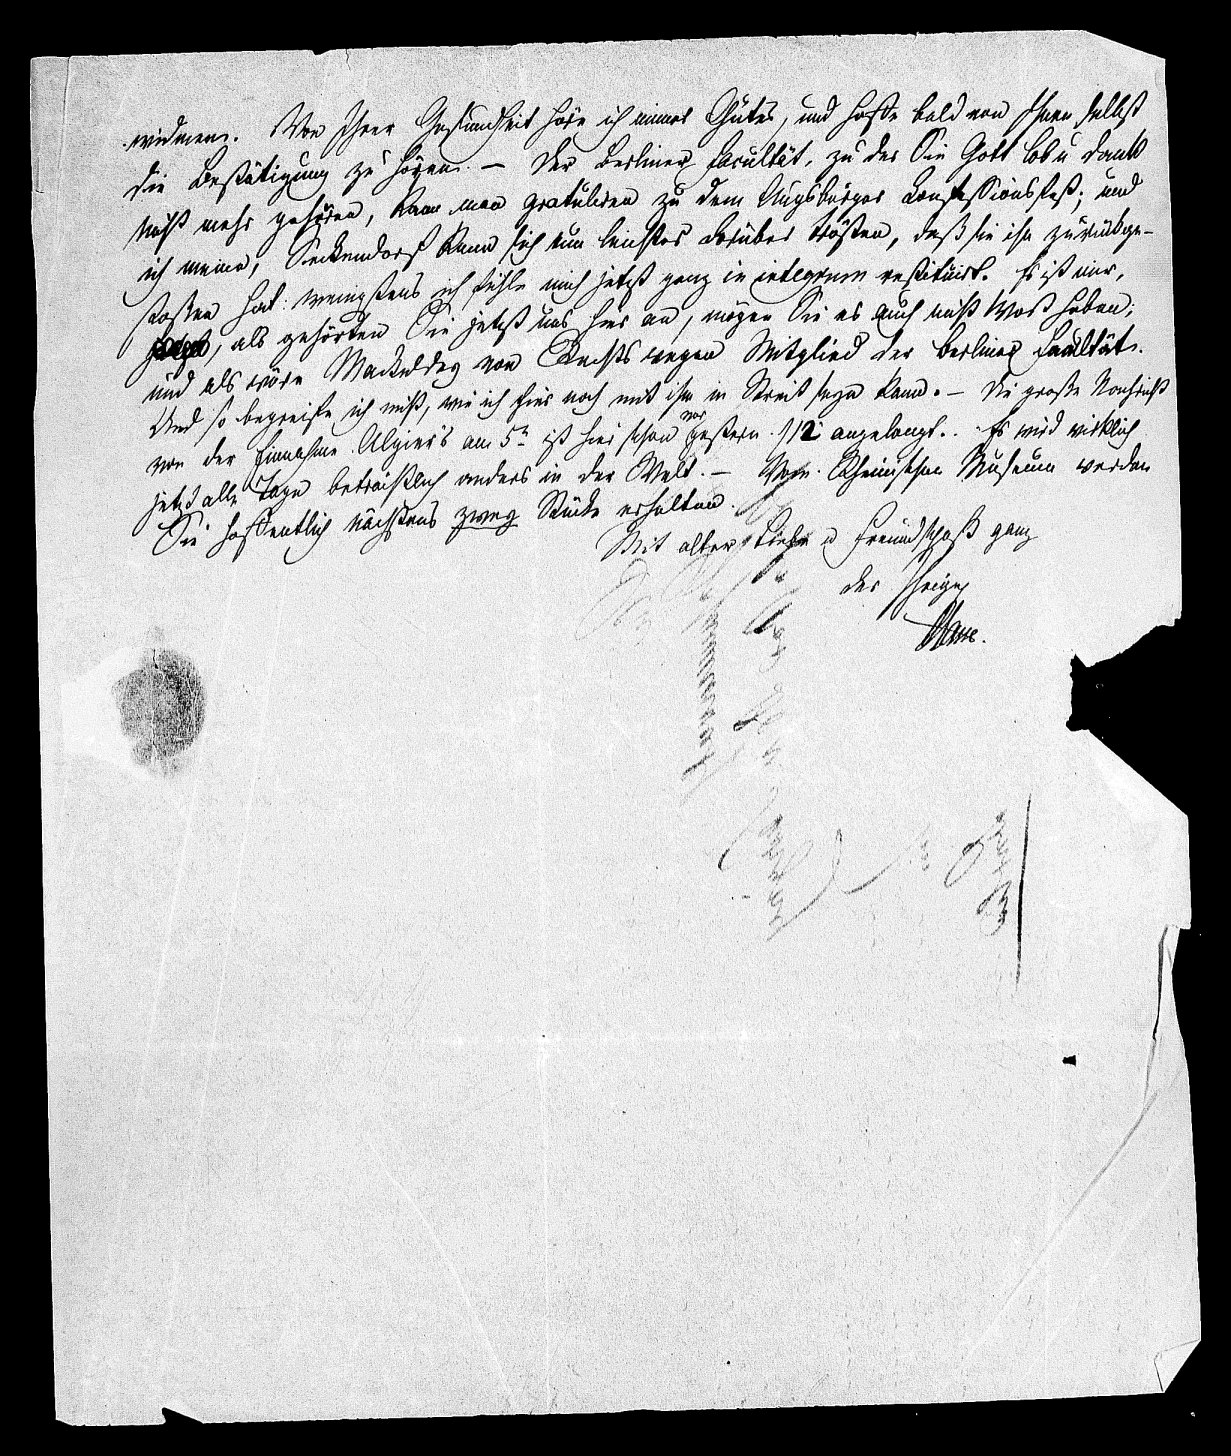 widmen. Von Ihrer Gesundheit höre ich immer Gutes, und hoffe bald von Ihnen selbst
die Bestätigung zu hören. – Der Berliner Facultät, zu der Sie Gott lob u Dank
nicht mehr gehören, kann man gratuliren zu dem Augsburger Confessionsfest; und
ich meine, Seckendorf kann sich nun leichter darüber trösten, daß sie ihn zurückge-
stoßen hat: wenigstens ich fühle mich jetzt ganz in integrum restituirt. Es ist mir,
als gehörten Sie jetzt uns hier an, mögen Sie es auch nicht Wort haben;
und als wäre Mackeldey von Rechts wegen Mitglied der Berliner Facultät.
Und so begreife ich nicht, wie ich hier noch mit ihm in Streit seyn kann. – Die große Nachricht
von der Einnahme Algier's am 5n ist hier schon vorgestern angelangt. Es wird wirklich
jetzt alle Tage beträchtlich anders in der Welt. – Vom Rheinischen Museum werden
Sie hoffentlich nächstens zwey Stücke erhalten.
Mit alter Liebe u Freundschaft ganz
der Ihrige